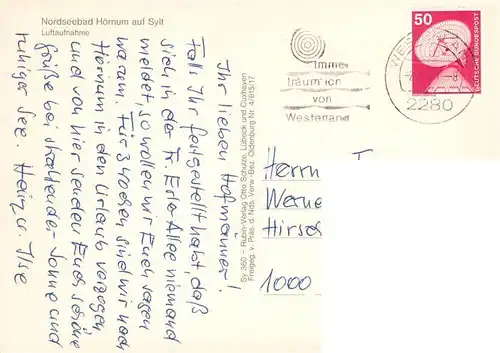 Nordseebad Hörnum auf Sylt
Luftaufnahme
Ihr lieben Hofmänner!
Falls Ihr festgestellt habt, daß
sich in der Fr. Erler Allee niemand
meldet, so wollen wir Euch sagen
warum. Für 3 Wochen sind wir nach
Hörnum in den Urlaub verzogen
und von hier senden Euch schöne
Grüße bei strahlender Sonne und
ruhiger See. Heinz u. Ilse
Sy 360 – Rubin-Verlag Otto Schulze, Lübeck und Cuxhaven
Freigeg. v. Präs. d. Nds. Verw.-Bez. Oldenburg Nr. 4/815/17
Immer
träum' ich
von
Westerland
2280
50
DEUTSCHE BUNDESPOST
Herrn
Werne
Hirsc
1000